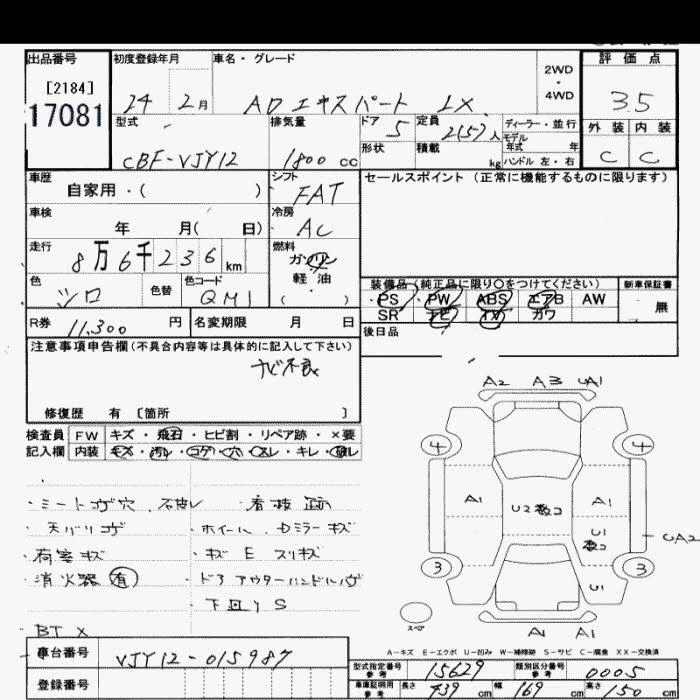 出品番号 初度登録年月 車名・グレード 2WD・4WD 評価点
[2184]
17081 24 2月 ADエキスパート LX 3.5
型式 排気量 ドア 定員 ディーラー・並行 外装 内装
CBF-VJY12 1800cc 5 2(5)人 モデル年式 年 C C
形状 積載 kg ハンドル 左・右
車歴 シフト セールスポイント(正常に機能するものに限ります)
自家用・( ) FAT
車検 冷房
年 月( 日) AC
走行 燃料
8万6千236km ガソリン
軽油
( )
色 色替 色コード 装備品(純正品に限り○をつけてください) 新車保証書
シロ QM1 PS PW ABS エアB AW 無
SR ナビ カワ
R券 11,300円 名変期限 月 日 後日品
注意事項申告欄(不具合内容等は具体的に記入して下さい)
ナビ不良
修復歴 有 [箇所 ]
検査員 FW キズ・飛石・ヒビ割・リペア跡・×要
記入欄 内装 キズ・汚レ・コゲ・穴・スレ・キレ・破レ
・シートコゲ穴、破レ ・看板跡
・天バリコゲ ・ホイール、Cミラーキズ
・荷室キズ ・キズ E スリキズ
・消火器有 ・ドアアウターハンドル
下回りS
・BT×
A2 A3 UA1
4 4
A1 U2数コ A1
U1
数コ UA2
3 3
U1
スペア
A1 A1
A－キズ E－エクボ U－凹み W－補修跡 S－サビ C－腐食 XX－交換済
車台番号 VJY12-015987
登録番号
型式指定番号 参考 15629 類別区分番号 参考 0005
車庫証明用 参考 長さ 439cm 幅 169cm 高さ 150cm